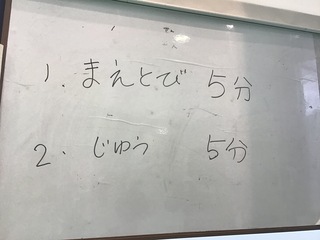 1. まえとび 5分
2. じゆう 5分